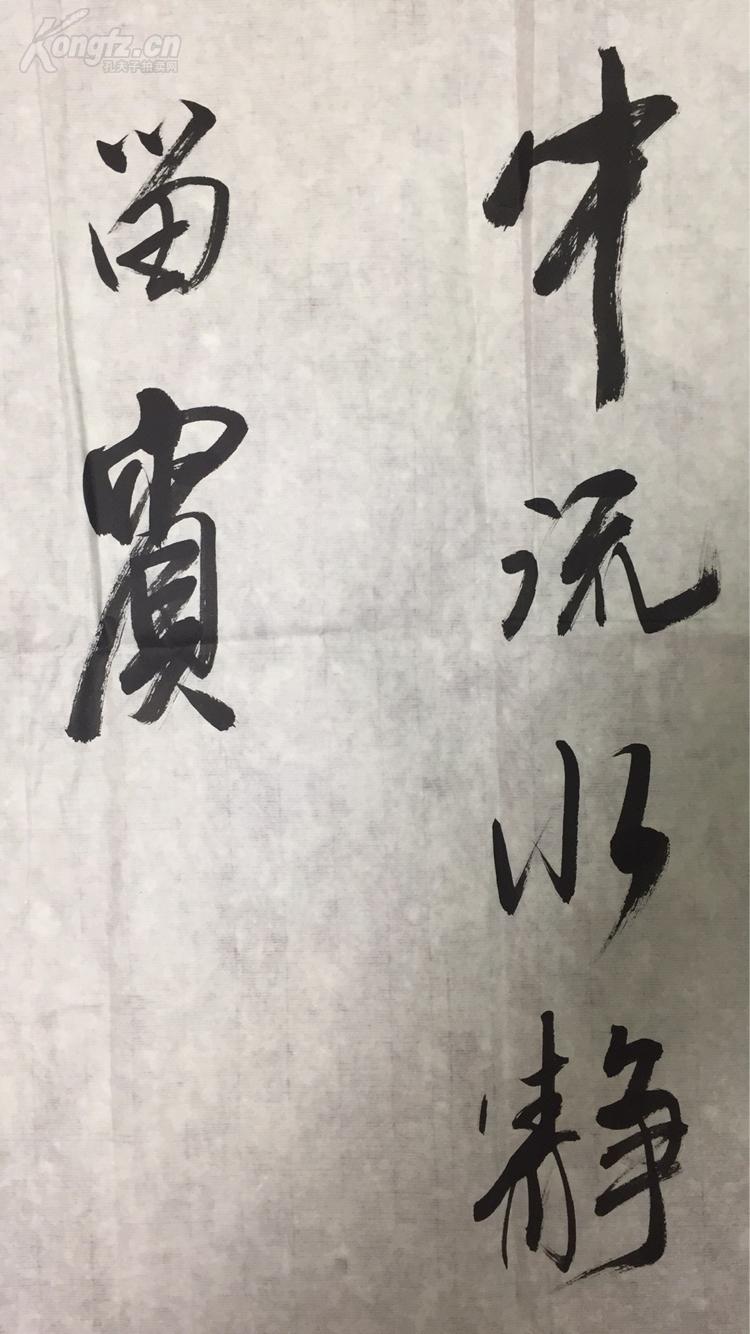 中流水静
留賓
Kongfz.cn
孔夫子拍卖网